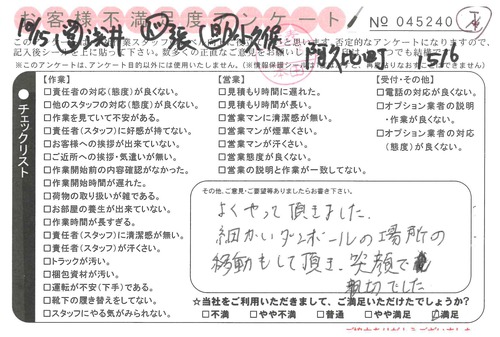 お客様不満足度アンケート
№ 045240
※このアンケートは、アンケート目的以外には使用いたしません。
チェックリスト
【作業】
□責任者の対応(態度)が良くない。
□他のスタッフの対応(態度)が良くない。
□作業を見ていて不安がある。
□責任者(スタッフ)に好感が持てない。
□お客様への挨拶が出来ていない。
□ご近所への挨拶・気遣いが無い。
□作業開始前の内容確認がなかった。
□作業開始時間が遅れた。
□荷物の取り扱いが雑である。
□お部屋の養生が出来ていない。
□作業時間が長すぎる。
□責任者(スタッフ)に清潔感が無い。
□責任者(スタッフ)が汗くさい。
□トラックが汚い。
□梱包資材が汚い。
□運転が不安(下手)である。
□靴下の履き替えをしてない。
□スタッフにやる気がみられない。
【営業】
□見積もり時間に遅れた。
□見積もり時間が長い。
□営業マンに清潔感が無い。
□営業マンが煙草くさい。
□営業マンが汗くさい。
□営業態度が良くない。
□営業の説明と作業が一致してない。
【受付・その他】
□電話の対応が良くない。
□オプション業者の説明
・作業が良くない。
□オプション業者の対応
(態度)が良くない。
その他、ご意見・ご要望等ありましたらお書き下さい。
よくやって頂きました。
細かいダンボールの場所の
移動もして頂き、笑顔で
親切でした
☆当社をご利用いただきまして、ご満足いただけたでしょうか?
□不満 □やや不満 □普通 □やや満足 ☑満足